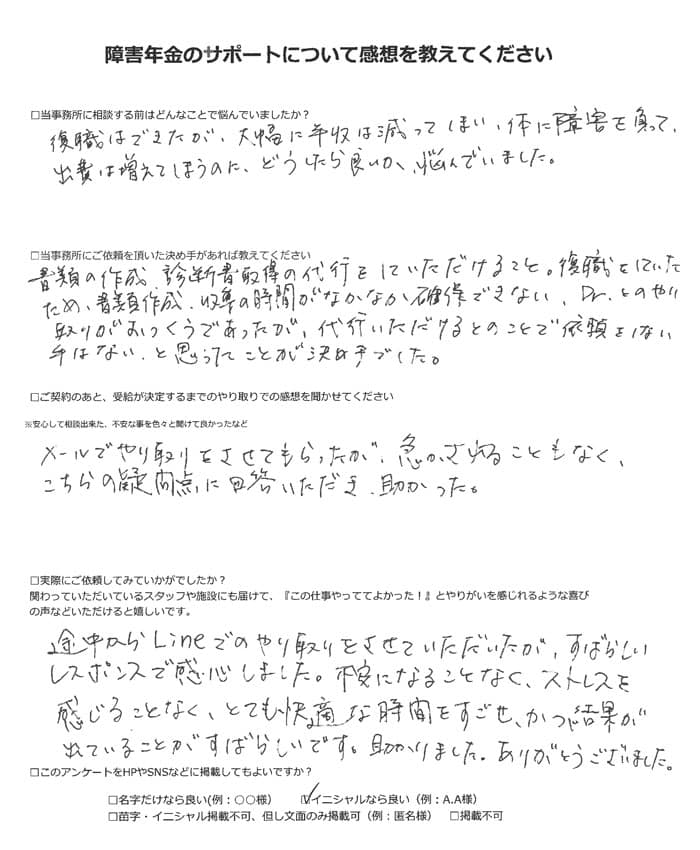 障害年金のサポートについて感想を教えてください
□当事務所に相談する前はどんなことで悩んでいましたか？
復職はできたが、大幅に年収は減ってしまい、体に障害を負って、
出費は増えてしまうのに、どうしたら良いか、悩んでいました。
□当事務所にご依頼を頂いた決め手があれば教えてください
書類の作成、診断書取得の代行をしていただけること。復職をしていた
ため、書類作成、収集の時間がなかなか確保できない、Dr.とのやり
取りがおっくうであったが、代行いただけるとのことで依頼をしない
手はない、と思ったことが決め手でした。
□ご契約のあと、受給が決定するまでのやり取りでの感想を聞かせてください
※安心して相談出来た、不安な事を色々と聞けて良かったなど
メールでやり取りをさせてもらったが、急かされることもなく、
こちらの疑問点に回答いただき、助かった。
□実際にご依頼してみていかがでしたか？
関わっていただいているスタッフや施設にも届けて、『この仕事やっててよかった！』とやりがいを感じれるような喜び
の声などいただけると嬉しいです。
途中からLineでのやり取りをさせていただいたが、すばらしい
レスポンスで感心しました。不安になることなく、ストレスを
感じることなく、とても快適な時間をすごせ、かつ結果が
出ていることがすばらしいです。助かりました。ありがとうございました。
□このアンケートをHPやSNSなどに掲載してもよいですか？
□名字だけなら良い(例：〇〇様） ☑イニシャルなら良い（例：A.A様）
□苗字・イニシャル掲載不可、但し文面のみ掲載可（例：匿名様） □掲載不可